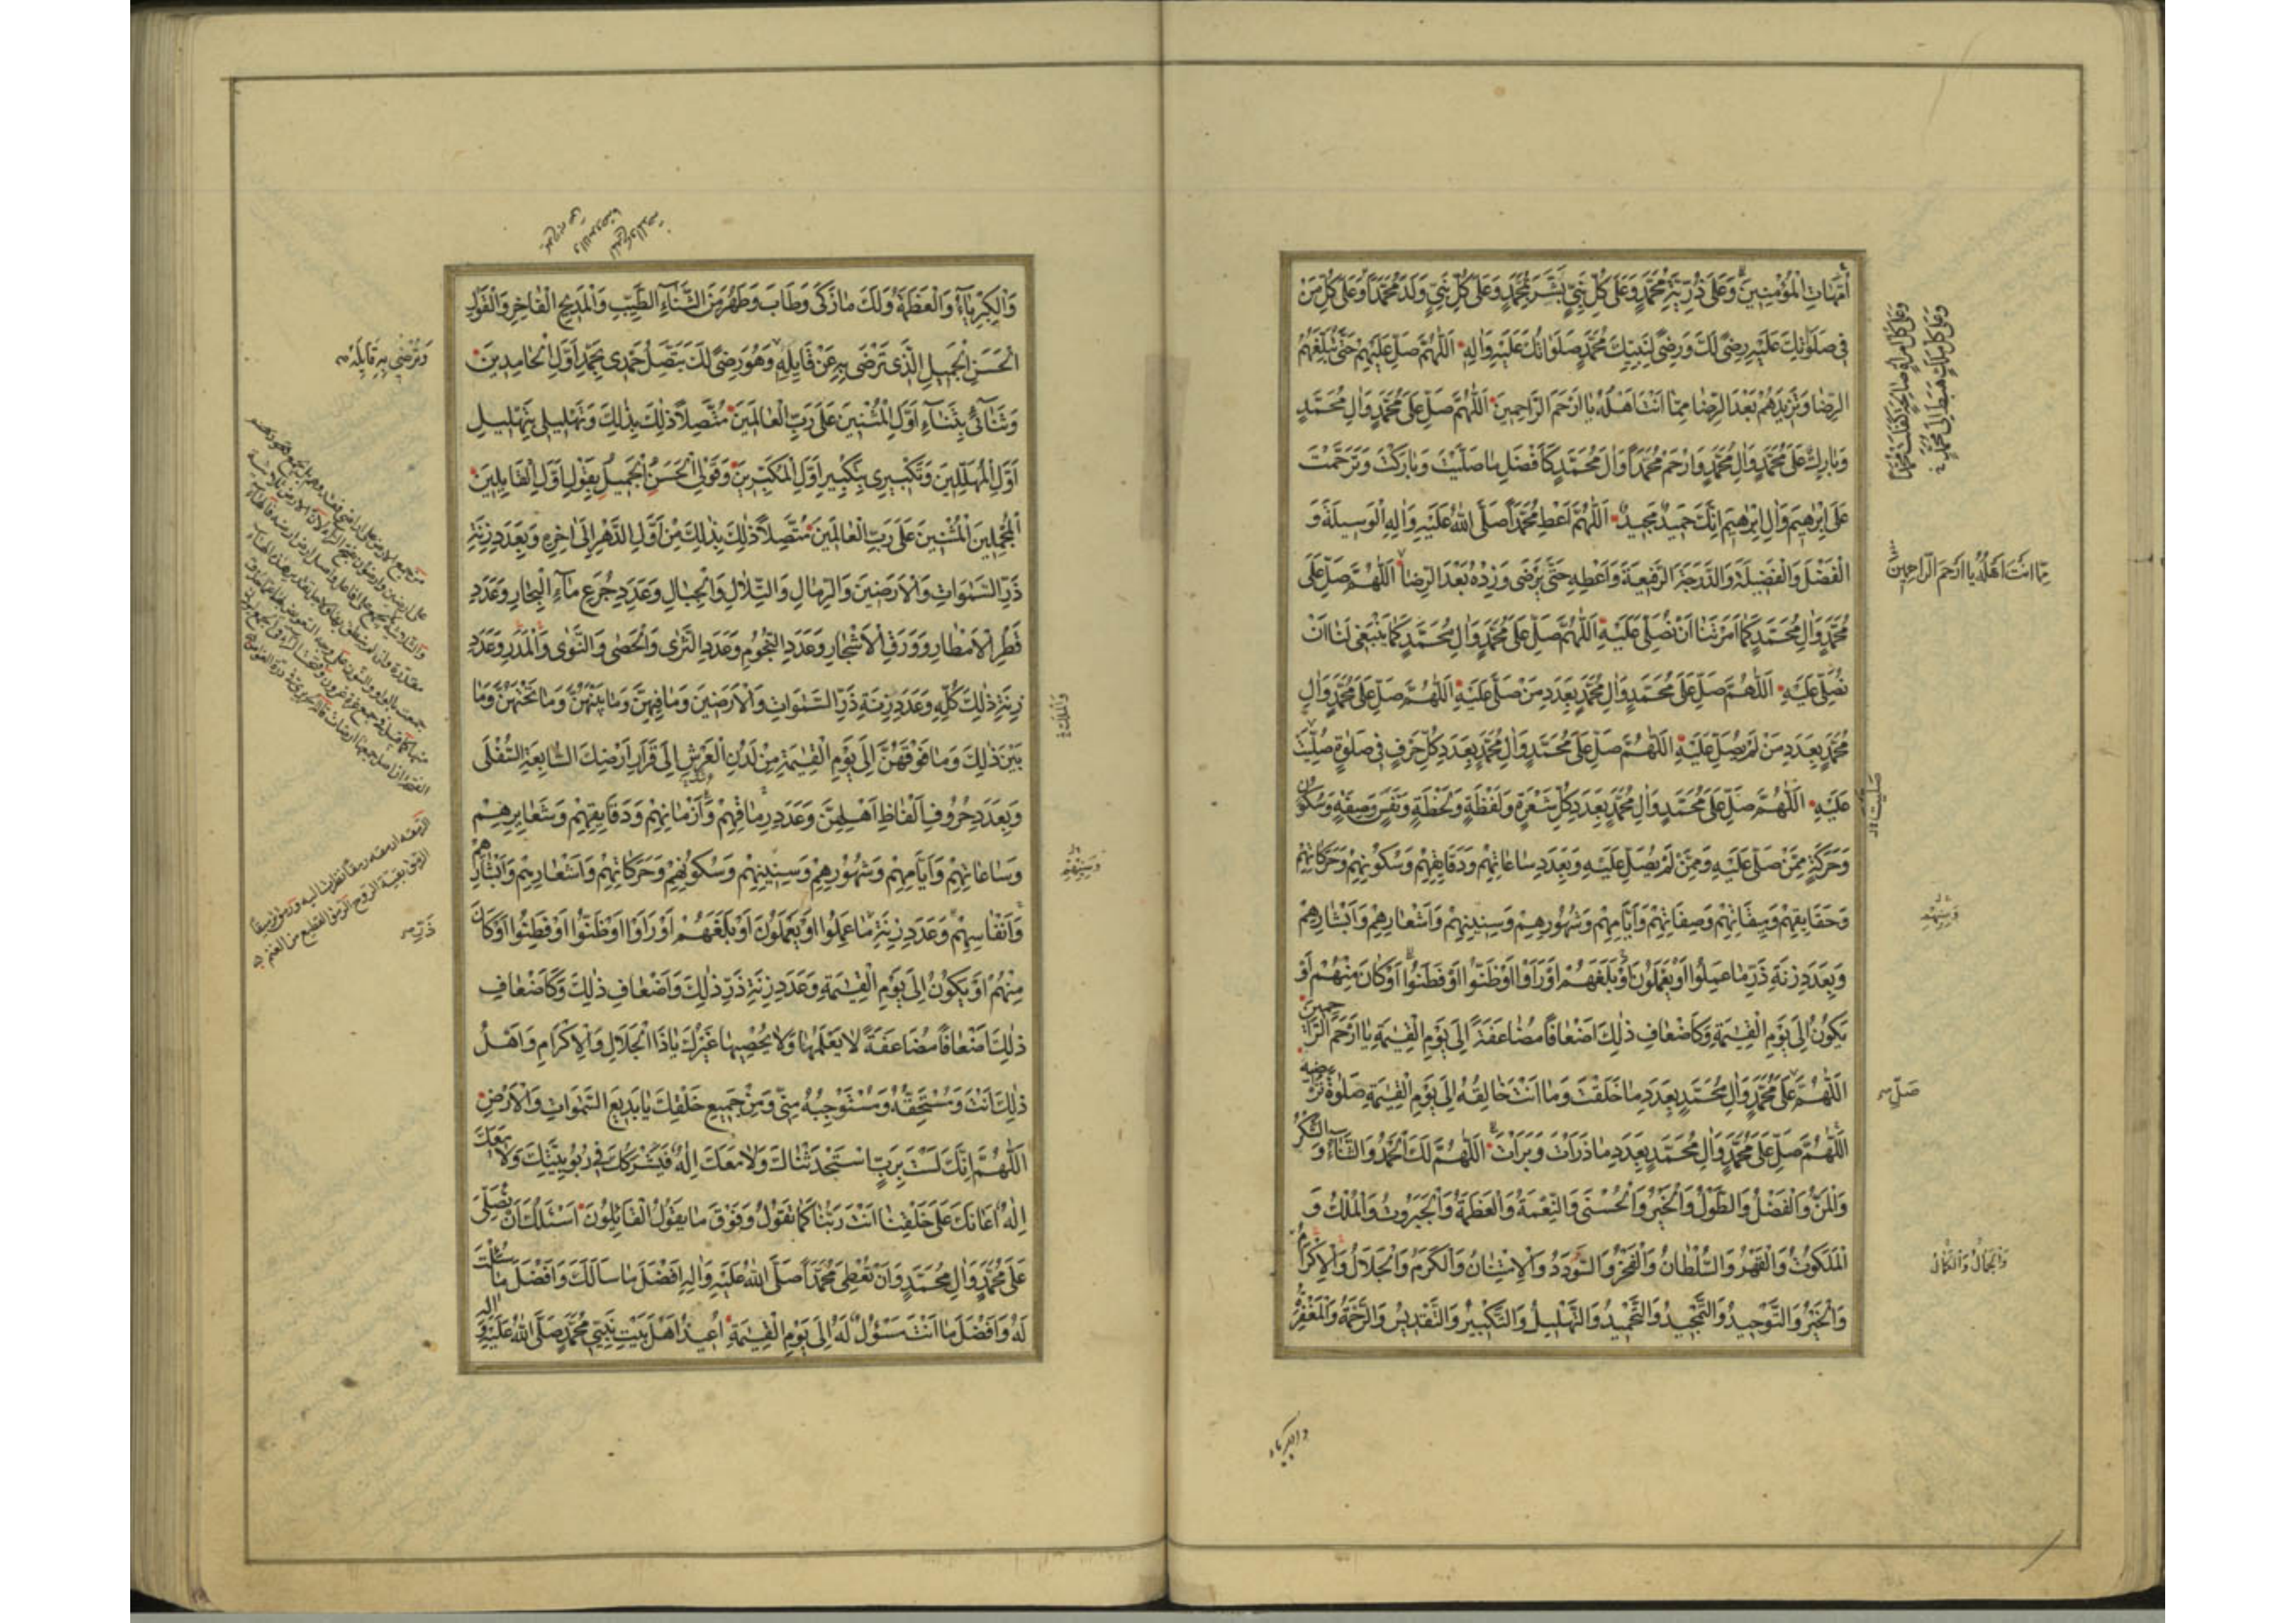 أُمَّهَاتِ الْمُؤْمِنِينَ وَعَلَى ذُرِّيَّةِ مُحَمَّدٍ وَعَلَى كُلِّ نَبِيٍّ بَشَّرَ بِمُحَمَّدٍ وَعَلَى كُلِّ نَبِيٍّ وَلَدَ مُحَمَّدًا وَعَلَى كُلِّ مَنْ
فِي صَلَوَاتِكَ عَلَيْهِ رِضًى لَكَ وَرِضًى لِنَبِيِّكَ مُحَمَّدٍ صَلَوَاتُكَ عَلَيْهِ وَآلِهِ اَللّٰهُمَّ صَلِّ عَلَيْهِمْ حَتَّى تُبَلِّغَهُمُ
الرِّضَا وَتَزِيدَهُمْ بَعْدَ الرِّضَا مِمَّا أَنْتَ أَهْلُهُ يَا أَرْحَمَ الرَّاحِمِينَ اَللّٰهُمَّ صَلِّ عَلَى مُحَمَّدٍ وَآلِ مُحَمَّدٍ
وَبَارِكْ عَلَى مُحَمَّدٍ وَآلِ مُحَمَّدٍ وَارْحَمْ مُحَمَّدًا وَآلَ مُحَمَّدٍ كَأَفْضَلِ مَا صَلَّيْتَ وَبَارَكْتَ وَتَرَحَّمْتَ
عَلَى إِبْرٰهِيمَ وَآلِ إِبْرٰهِيمَ إِنَّكَ حَمِيدٌ مَجِيدٌ اَللّٰهُمَّ أَعْطِ مُحَمَّدًا صَلَّى اللّٰهُ عَلَيْهِ وَآلِهِ الْوَسِيلَةَ وَ
الْفَضْلَ وَالْفَضِيلَةَ وَالدَّرَجَةَ الرَّفِيعَةَ وَأَعْطِهِ حَتَّى يَرْضَى وَزِدْهُ بَعْدَ الرِّضَا اَللّٰهُمَّ صَلِّ عَلَى
مُحَمَّدٍ وَآلِ مُحَمَّدٍ كَمَا أَمَرْتَنَا أَنْ نُصَلِّيَ عَلَيْهِ اَللّٰهُمَّ صَلِّ عَلَى مُحَمَّدٍ وَآلِ مُحَمَّدٍ كَمَا يَنْبَغِي لَنَا أَنْ
نُصَلِّيَ عَلَيْهِ اَللّٰهُمَّ صَلِّ عَلَى مُحَمَّدٍ وَآلِ مُحَمَّدٍ بِعَدَدِ مَنْ صَلَّى عَلَيْهِ اَللّٰهُمَّ صَلِّ عَلَى مُحَمَّدٍ وَآلِ
مُحَمَّدٍ بِعَدَدِ مَنْ لَمْ يُصَلِّ عَلَيْهِ اَللّٰهُمَّ صَلِّ عَلَى مُحَمَّدٍ وَآلِ مُحَمَّدٍ بِعَدَدِ كُلِّ حَرْفٍ فِي صَلٰوةٍ صُلِّيَتْ
عَلَيْهِ اَللّٰهُمَّ صَلِّ عَلَى مُحَمَّدٍ وَآلِ مُحَمَّدٍ بِعَدَدِ كُلِّ شَعْرَةٍ وَلَفْظَةٍ وَلَحْظَةٍ وَنَفَسٍ وَصِفَةٍ وَسُكُونٍ
وَحَرَكَةٍ مِمَّنْ صَلَّى عَلَيْهِ وَمِمَّنْ لَمْ يُصَلِّ عَلَيْهِ وَبِعَدَدِ سَاعَاتِهِمْ وَدَقَايِقِهِمْ وَسُكُونِهِمْ وَحَرَكَاتِهِمْ
وَحَقَايِقِهِمْ وَمِيقَاتِهِمْ وَصِفَاتِهِمْ وَأَيَّامِهِمْ وَشُهُورِهِمْ وَسِنِينِهِمْ وَأَشْعَارِهِمْ وَأَبْشَارِهِمْ
وَبِعَدَدِ زِنَةِ ذَرِّ مَا عَمِلُوا أَوْ يَعْمَلُونَ أَوْ بَلَغَهُمْ أَوْ رَأَوْا أَوْ ظَنُّوا أَوْ فَطَنُوا أَوْ كَانَ مِنْهُمْ أَوْ
يَكُونُ إِلَى يَوْمِ الْقِيٰمَةِ وَكَأَضْعَافِ ذٰلِكَ أَضْعَافًا مُضَاعَفَةً إِلَى يَوْمِ الْقِيٰمَةِ يَا أَرْحَمَ الرَّاحِمِينَ
اَللّٰهُمَّ عَلَى مُحَمَّدٍ وَآلِ مُحَمَّدٍ بِعَدَدِ مَا خَلَقْتَ وَمَا أَنْتَ خَالِقُهُ إِلَى يَوْمِ الْقِيٰمَةِ صَلٰوةً تُرْضِيهِ
اَللّٰهُمَّ صَلِّ عَلَى مُحَمَّدٍ وَآلِ مُحَمَّدٍ بِعَدَدِ مَا ذَرَأْتَ وَبَرَأْتَ اَللّٰهُمَّ لَكَ الْحَمْدُ وَالثَّنَاءُ وَالشُّكْرُ
وَالْمَنُّ وَالْفَضْلُ وَالطَّوْلُ وَالْخَيْرُ وَالْحُسْنَى وَالنِّعْمَةُ وَالْعَظَمَةُ وَالْجَبَرُوتُ وَالْمُلْكُ وَ
الْمَلَكُوتُ وَالْقَهْرُ وَالسُّلْطَانُ وَالْفَخْرُ وَالسُّؤْدَدُ وَالِامْتِنَانُ وَالْكَرَمُ وَالْجَلَالُ وَالْإِكْرَامُ
وَالْخَيْرُ وَالتَّوْحِيدُ وَالتَّمْجِيدُ وَالتَّحْمِيدُ وَالتَّهْلِيلُ وَالتَّكْبِيرُ وَالتَّقْدِيسُ وَالرَّحْمَةُ وَالْمَغْفِرَةُ
وَعَلَى كُلِّ امْرَأَةٍ صَالِحَةٍ كَفَلَتْ مُحَمَّدًا
وَعَلَى كُلِّ مَلَكٍ هَبَطَ إِلَى مُحَمَّدٍ
مِمَّا أَنْتَ أَهْلُهُ يَا أَرْحَمَ الرَّاحِمِينَ
صَلَّيْتَ
وَسِنِيهِمْ
صَلِّ
وَالْجَمَالُ وَالْكَمَالُ
والكبرياء
وَالْكِبْرِيَاءُ وَالْعَظَمَةُ وَلَكَ مَا زَكَى وَطَابَ وَطَهُرَ مِنَ الثَّنَاءِ الطَّيِّبِ وَالْمَدِيحِ الْفَاخِرِ وَالْقَوْلِ
الْحَسَنِ الْجَمِيلِ الَّذِي تَرْضَى بِهِ عَنْ قَايِلِهِ وَهُوَ رِضًى لَكَ يَتَّصِلُ حَمْدِي بِحَمْدِ أَوَّلِ الْحَامِدِينَ
وَثَنَائِي بِثَنَاءِ أَوَّلِ الْمُثْنِينَ عَلَى رَبِّ الْعَالَمِينَ مُتَّصِلًا ذٰلِكَ بِذٰلِكَ وَتَهْلِيلِي بِتَهْلِيلِ
أَوَّلِ الْمُهَلِّلِينَ وَتَكْبِيرِي بِتَكْبِيرِ أَوَّلِ الْمُكَبِّرِينَ وَقَوْلِيَ الْحَسَنُ الْجَمِيلُ بِقَوْلِ أَوَّلِ الْقَايِلِينَ
الْمُجْمِلِينَ الْمُثْنِينَ عَلَى رَبِّ الْعَالَمِينَ مُتَّصِلًا ذٰلِكَ بِذٰلِكَ مِنْ أَوَّلِ الدَّهْرِ إِلَى آخِرِهِ وَبِعَدَدِ زِنَةِ
ذَرِّ السَّمٰوَاتِ وَالْأَرَضِينَ وَالرِّمَالِ وَالتِّلَالِ وَالْجِبَالِ وَعَدَدِ جُرَعِ مَاءِ الْبِحَارِ وَعَدَدِ
قَطْرِ الْأَمْطَارِ وَوَرَقِ الْأَشْجَارِ وَعَدَدِ النُّجُومِ وَعَدَدِ الثَّرَى وَالْحَصَى وَالنَّوَى وَالْمَدَرِ وَعَدَدِ
زِنَةِ ذٰلِكَ كُلِّهِ وَعَدَدِ زِنَةِ ذَرِّ السَّمٰوَاتِ وَالْأَرَضِينَ وَمَا فِيهِنَّ وَمَا بَيْنَهُنَّ وَمَا تَحْتَهُنَّ وَمَا
بَيْنَ ذٰلِكَ وَمَا فَوْقَهُنَّ إِلَى يَوْمِ الْقِيٰمَةِ مِنْ لَدُنِ الْعَرْشِ إِلَى قَرَارِ أَرْضِكَ السَّابِعَةِ السُّفْلَى
وَبِعَدَدِ حُرُوفِ أَلْفَاظِ أَهْلِهِنَّ وَعَدَدِ رِمَاقِهِمْ وَأَزْمَانِهِمْ وَدَقَايِقِهِمْ وَشَعَايِرِهِمْ
وَسَاعَاتِهِمْ وَأَيَّامِهِمْ وَشُهُورِهِمْ وَسِنِينِهِمْ وَسُكُونِهِمْ وَحَرَكَاتِهِمْ وَأَشْعَارِهِمْ وَأَبْشَارِهِمْ
وَأَنْفَاسِهِمْ وَعَدَدِ زِنَةِ مَا عَمِلُوا أَوْ يَعْمَلُونَ أَوْ بَلَغَهُمْ أَوْ رَأَوْا أَوْ ظَنُّوا أَوْ فَطِنُوا أَوْ كَانَ
مِنْهُمْ أَوْ يَكُونُ إِلَى يَوْمِ الْقِيٰمَةِ وَعَدَدِ زِنَةِ ذَرِّ ذٰلِكَ وَأَضْعَافِ ذٰلِكَ وَكَأَضْعَافِ
ذٰلِكَ أَضْعَافًا مُضَاعَفَةً لَا يَعْلَمُهَا وَلَا يُحْصِيهَا غَيْرُكَ يَا ذَا الْجَلَالِ وَالْإِكْرَامِ وَأَهْلُ
ذٰلِكَ أَنْتَ وَمُسْتَحِقُّهُ وَمُسْتَوْجِبُهُ مِنِّي وَمِنْ جَمِيعِ خَلْقِكَ يَا بَدِيعَ السَّمٰوَاتِ وَالْأَرْضِ
اَللّٰهُمَّ إِنَّكَ لَسْتَ بِرَبٍّ اسْتَحْدَثْنَاكَ وَلَا مَعَكَ إِلٰهٌ فَيَشْرَكَكَ فِي رُبُوبِيَّتِكَ وَلَا مَعَكَ
إِلٰهٌ أَعَانَكَ عَلَى خَلْقِنَا أَنْتَ رَبُّنَا كَمَا نَقُولُ وَفَوْقَ مَا يَقُولُ الْقَايِلُونَ أَسْئَلُكَ أَنْ تُصَلِّيَ
عَلَى مُحَمَّدٍ وَآلِ مُحَمَّدٍ وَأَنْ تُعْطِيَ مُحَمَّدًا صَلَّى اللّٰهُ عَلَيْهِ وَآلِهِ أَفْضَلَ مَا سَأَلَكَ وَأَفْضَلَ مَا سُئِلْتَ
لَهُ وَأَفْضَلَ مَا أَنْتَ مَسْؤُلٌ لَهُ إِلَى يَوْمِ الْقِيٰمَةِ أُعِيذُ أَهْلَ بَيْتِ نَبِيِّي مُحَمَّدٍ صَلَّى اللّٰهُ عَلَيْهِ وَآلِهِ
وَتُرْضِي بِهِ قَايِلَهُ
وَسِنِيهِمْ
ذَرِّ